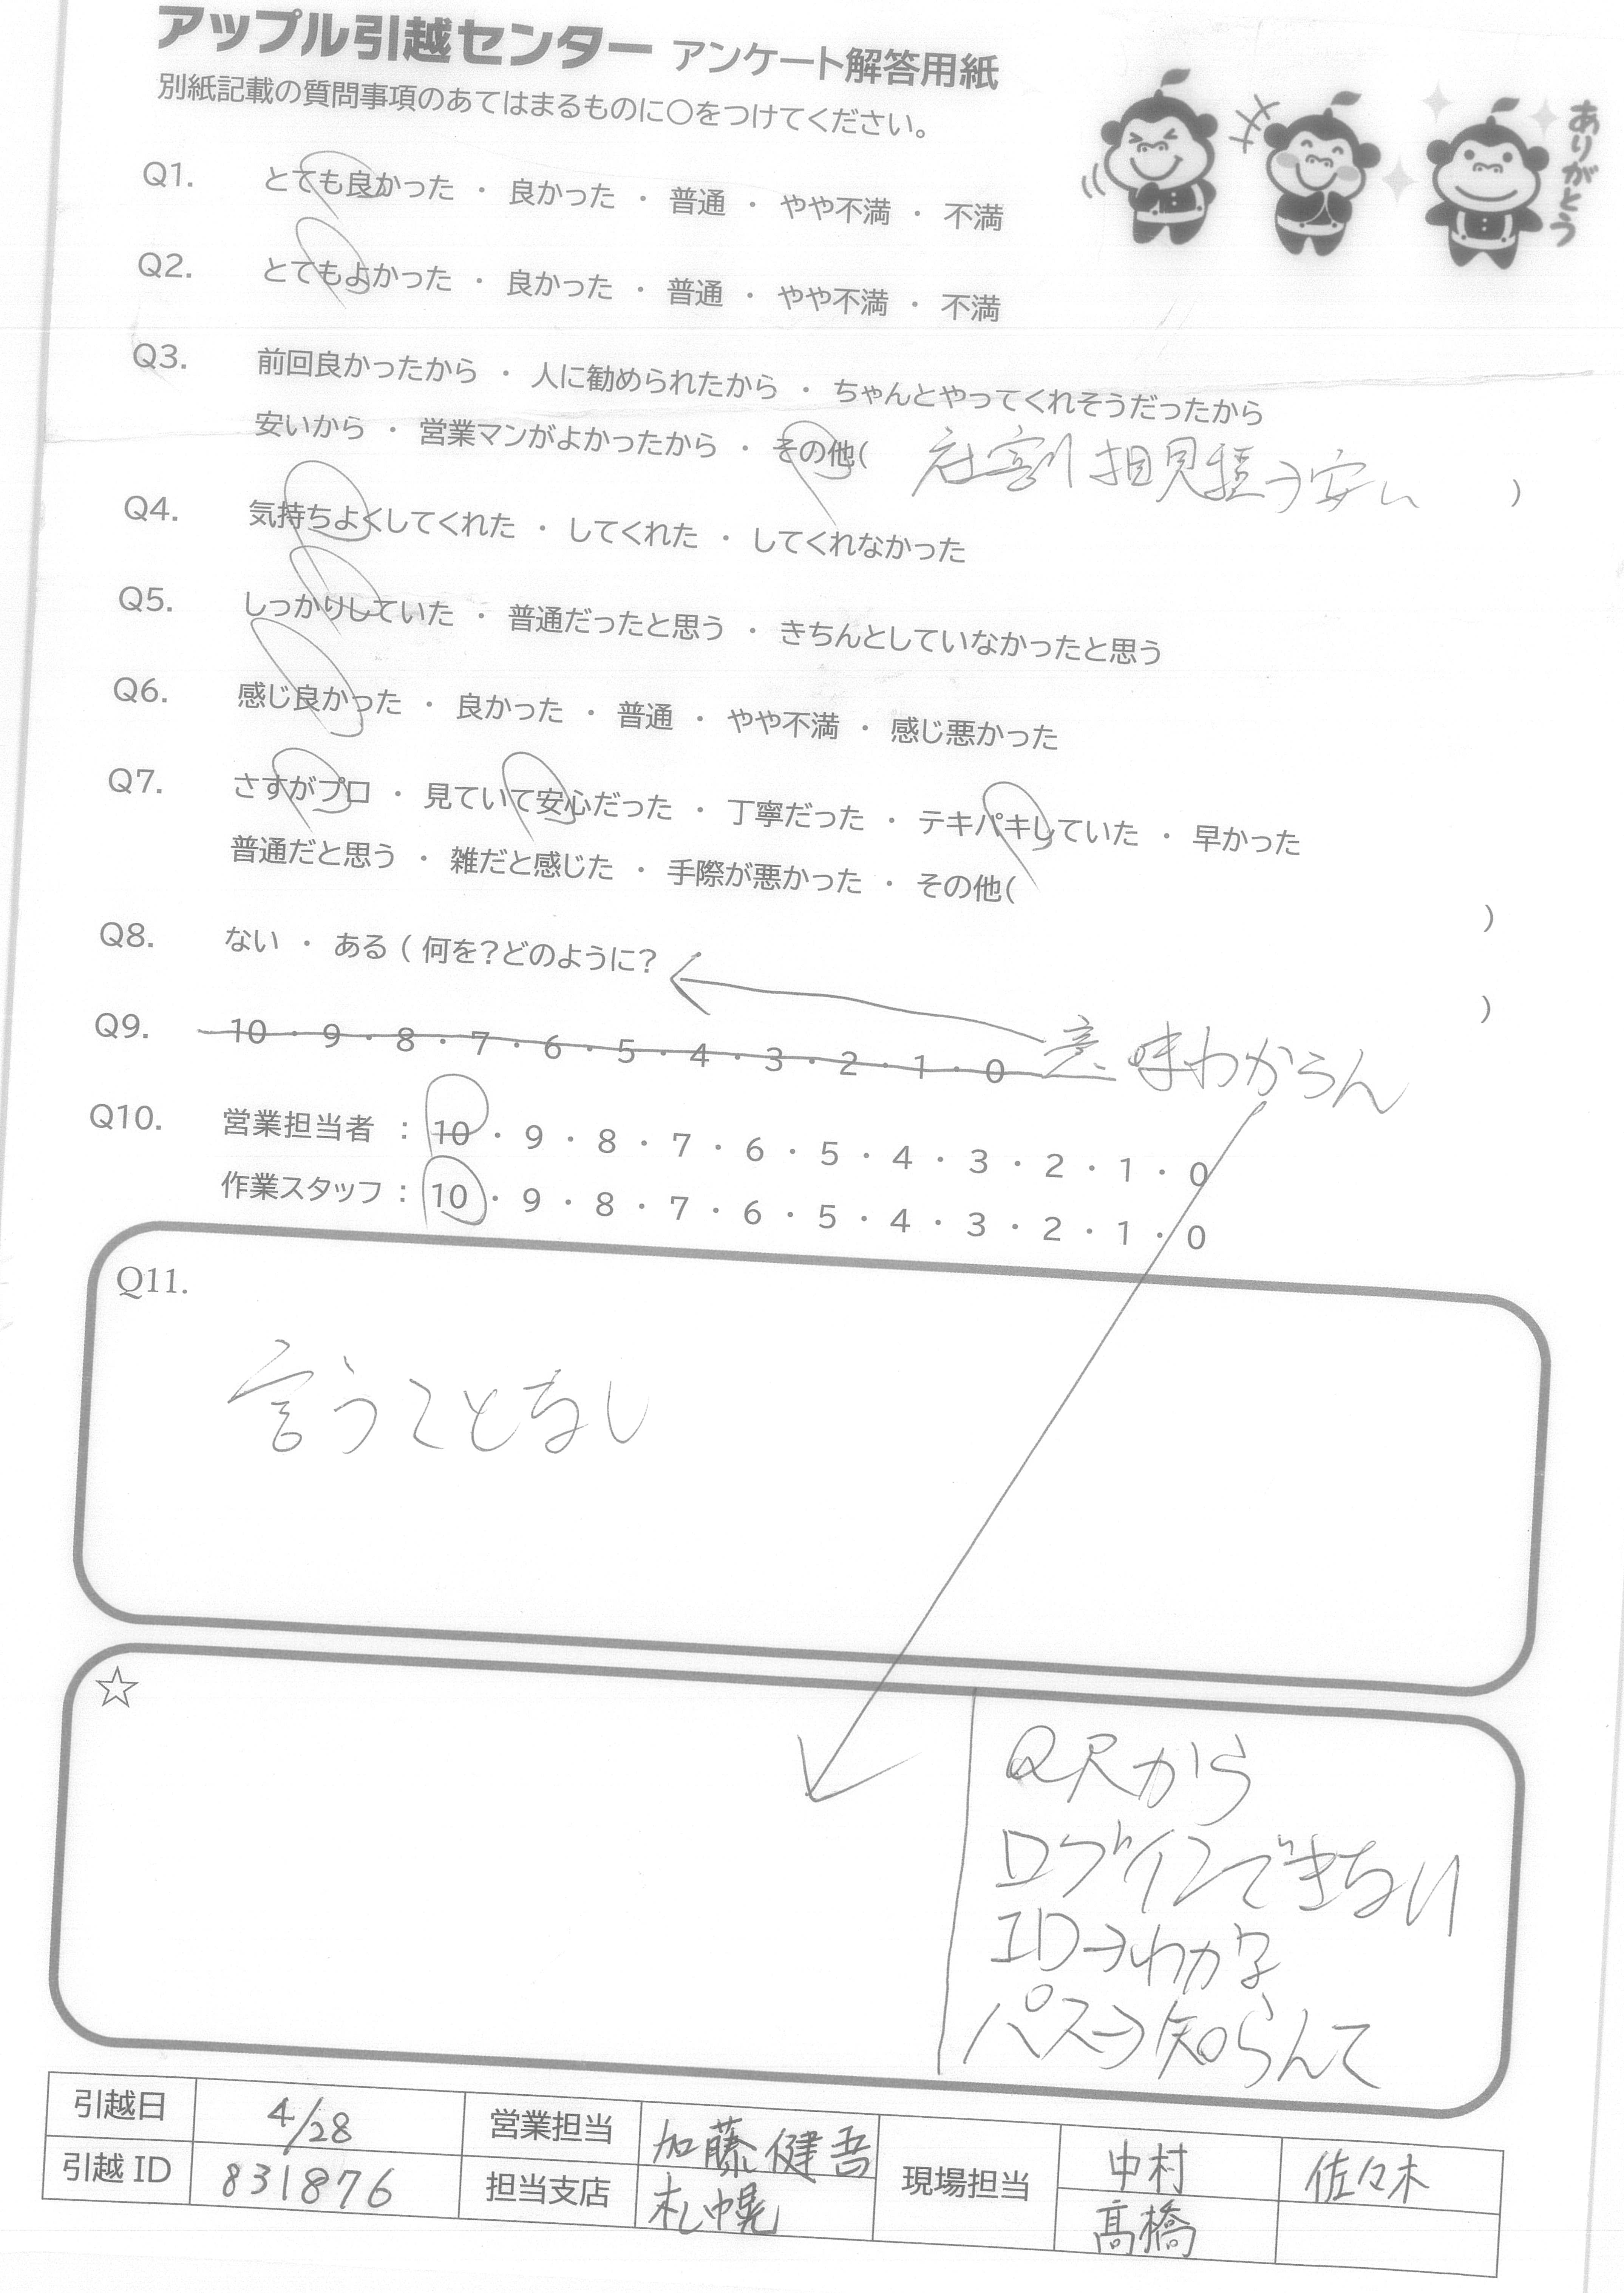 アップル引越センター アンケート解答用紙
別紙記載の質問事項のあてはまるものに〇をつけてください。
ありがとう
Q1. とても良かった ・ 良かった ・ 普通 ・ やや不満 ・ 不満
Q2. とてもよかった ・ 良かった ・ 普通 ・ やや不満 ・ 不満
Q3. 前回良かったから ・ 人に勧められたから ・ ちゃんとやってくれそうだったから
安いから ・ 営業マンがよかったから ・ その他( 社割 相見積→安い )
Q4. 気持ちよくしてくれた ・ してくれた ・ してくれなかった
Q5. しっかりしていた ・ 普通だったと思う ・ きちんとしていなかったと思う
Q6. 感じ良かった ・ 良かった ・ 普通 ・ やや不満 ・ 感じ悪かった
Q7. さすがプロ ・ 見ていて安心だった ・ 丁寧だった ・ テキパキしていた ・ 早かった
普通だと思う ・ 雑だと感じた ・ 手際が悪かった ・ その他( )
Q8. ない ・ ある ( 何を?どのように? )
Q9. 10 ・ 9 ・ 8 ・ 7 ・ 6 ・ 5 ・ 4 ・ 3 ・ 2 ・ 1 ・ 0 意味わからん
Q10. 営業担当者 : 10 ・ 9 ・ 8 ・ 7 ・ 6 ・ 5 ・ 4 ・ 3 ・ 2 ・ 1 ・ 0
作業スタッフ : 10 ・ 9 ・ 8 ・ 7 ・ 6 ・ 5 ・ 4 ・ 3 ・ 2 ・ 1 ・ 0
Q11.
言うことなし
☆
QRから
ログインできない
ID→わかる
パス→知らんて
引越日 4/28 営業担当 加藤健吾 現場担当 中村 佐々木
引越 ID 831876 担当支店 札幌 髙橋